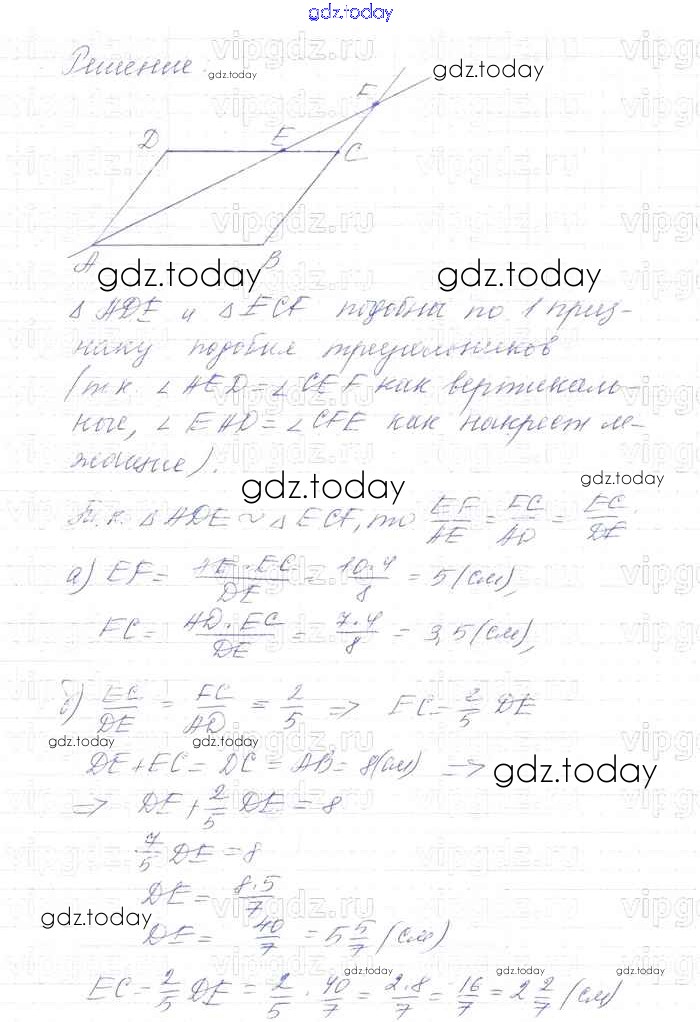 gdz.today
Решение
gdz.today
gdz.today
F
D E C
A B
gdz.today gdz.today
△ ADE и △ ECF подобны по 1 приз-
наку подобия треугольников
(т.к. ∠ AED = ∠ CEF как вертикаль-
ные, ∠ EAD = ∠ CFE как накрест ле-
жащие).
gdz.today gdz.today
Т.к. △ ADE ~ △ ECF, то EF/AE = FC/AD = EC/DE
а) EF = AE·EC/DE = 10·4/8 = 5 (см),
FC = AD·EC/DE = 7·4/8 = 3,5 (см),
б) EC/DE = FC/AD = 2/5 => EC = 2/5 DE
gdz.today gdz.today gdz.today
DE + EC = DC = AB = 8 (см) =>
gdz.today
=> DE + 2/5 DE = 8
7/5 DE = 8
DE = 8·5/7
gdz.today
DE = 40/7 = 5 5/7 (см)
gdz.today gdz.today gdz.today
EC = 2/5 DE = 2/5 · 40/7 = 2·8/7 = 16/7 = 2 2/7 (см)